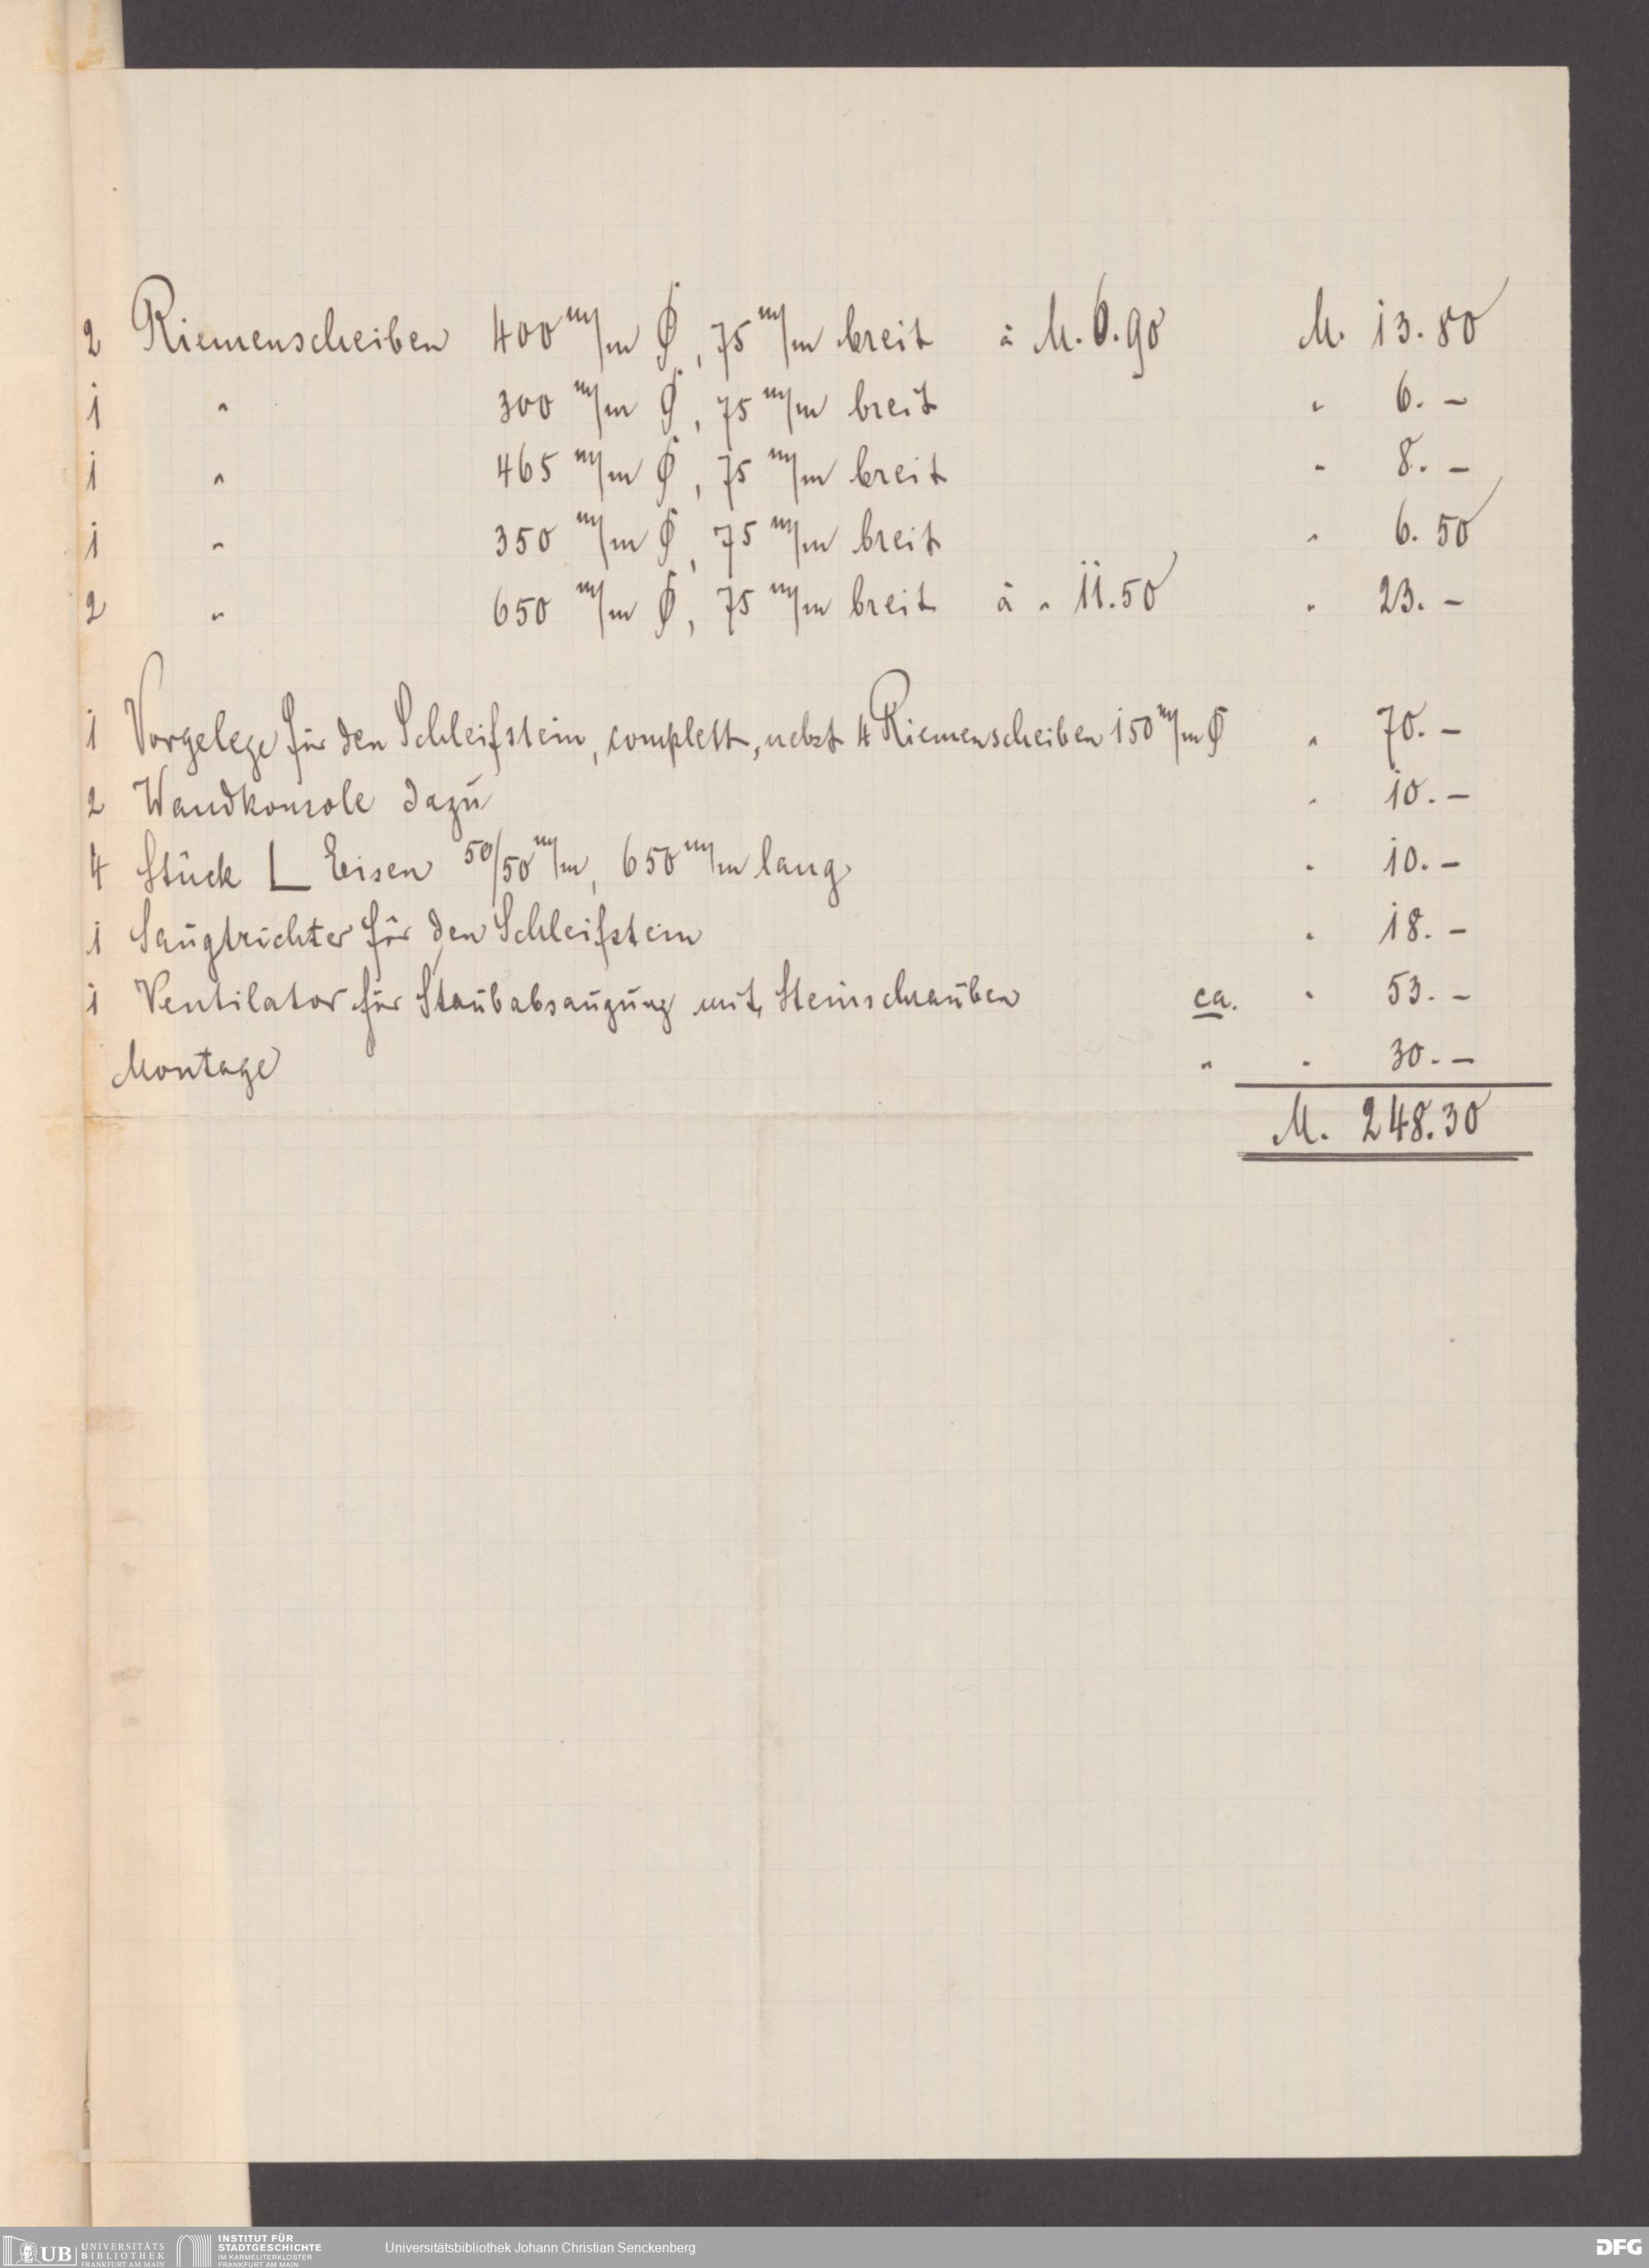 2 Riemenscheiben 400 m/m ∅, 75 m/m breit à M. 6.90 M. 13.80
1 " 300 m/m ∅, 75 m/m breit " 6. –
1 " 465 m/m ∅, 75 m/m breit " 8. –
1 " 350 m/m ∅, 75 m/m breit " 6. 50
2 " 650 m/m ∅, 75 m/m breit à " 11.50 " 23. –
1 Vorgelege für den Schleifstein, complett, nebst 4 Riemenscheiben 150 m/m ∅ " 70. –
2 Wandkonsole dazu " 10. –
4 Stück L Eisen 50/50 m/m, 650 m/m lang " 10. –
1 Saugtrichter für den Schleifstein " 18. –
1 Ventilator für Staubabsaugung mit Steinschrauben ca. " 53. –
Montage " " 30. –
M. 248.30
UB UNIVERSITÄTS BIBLIOTHEK FRANKFURT AM MAIN
INSTITUT FÜR STADTGESCHICHTE IM KARMELITERKLOSTER FRANKFURT AM MAIN
Universitätsbibliothek Johann Christian Senckenberg
DFG